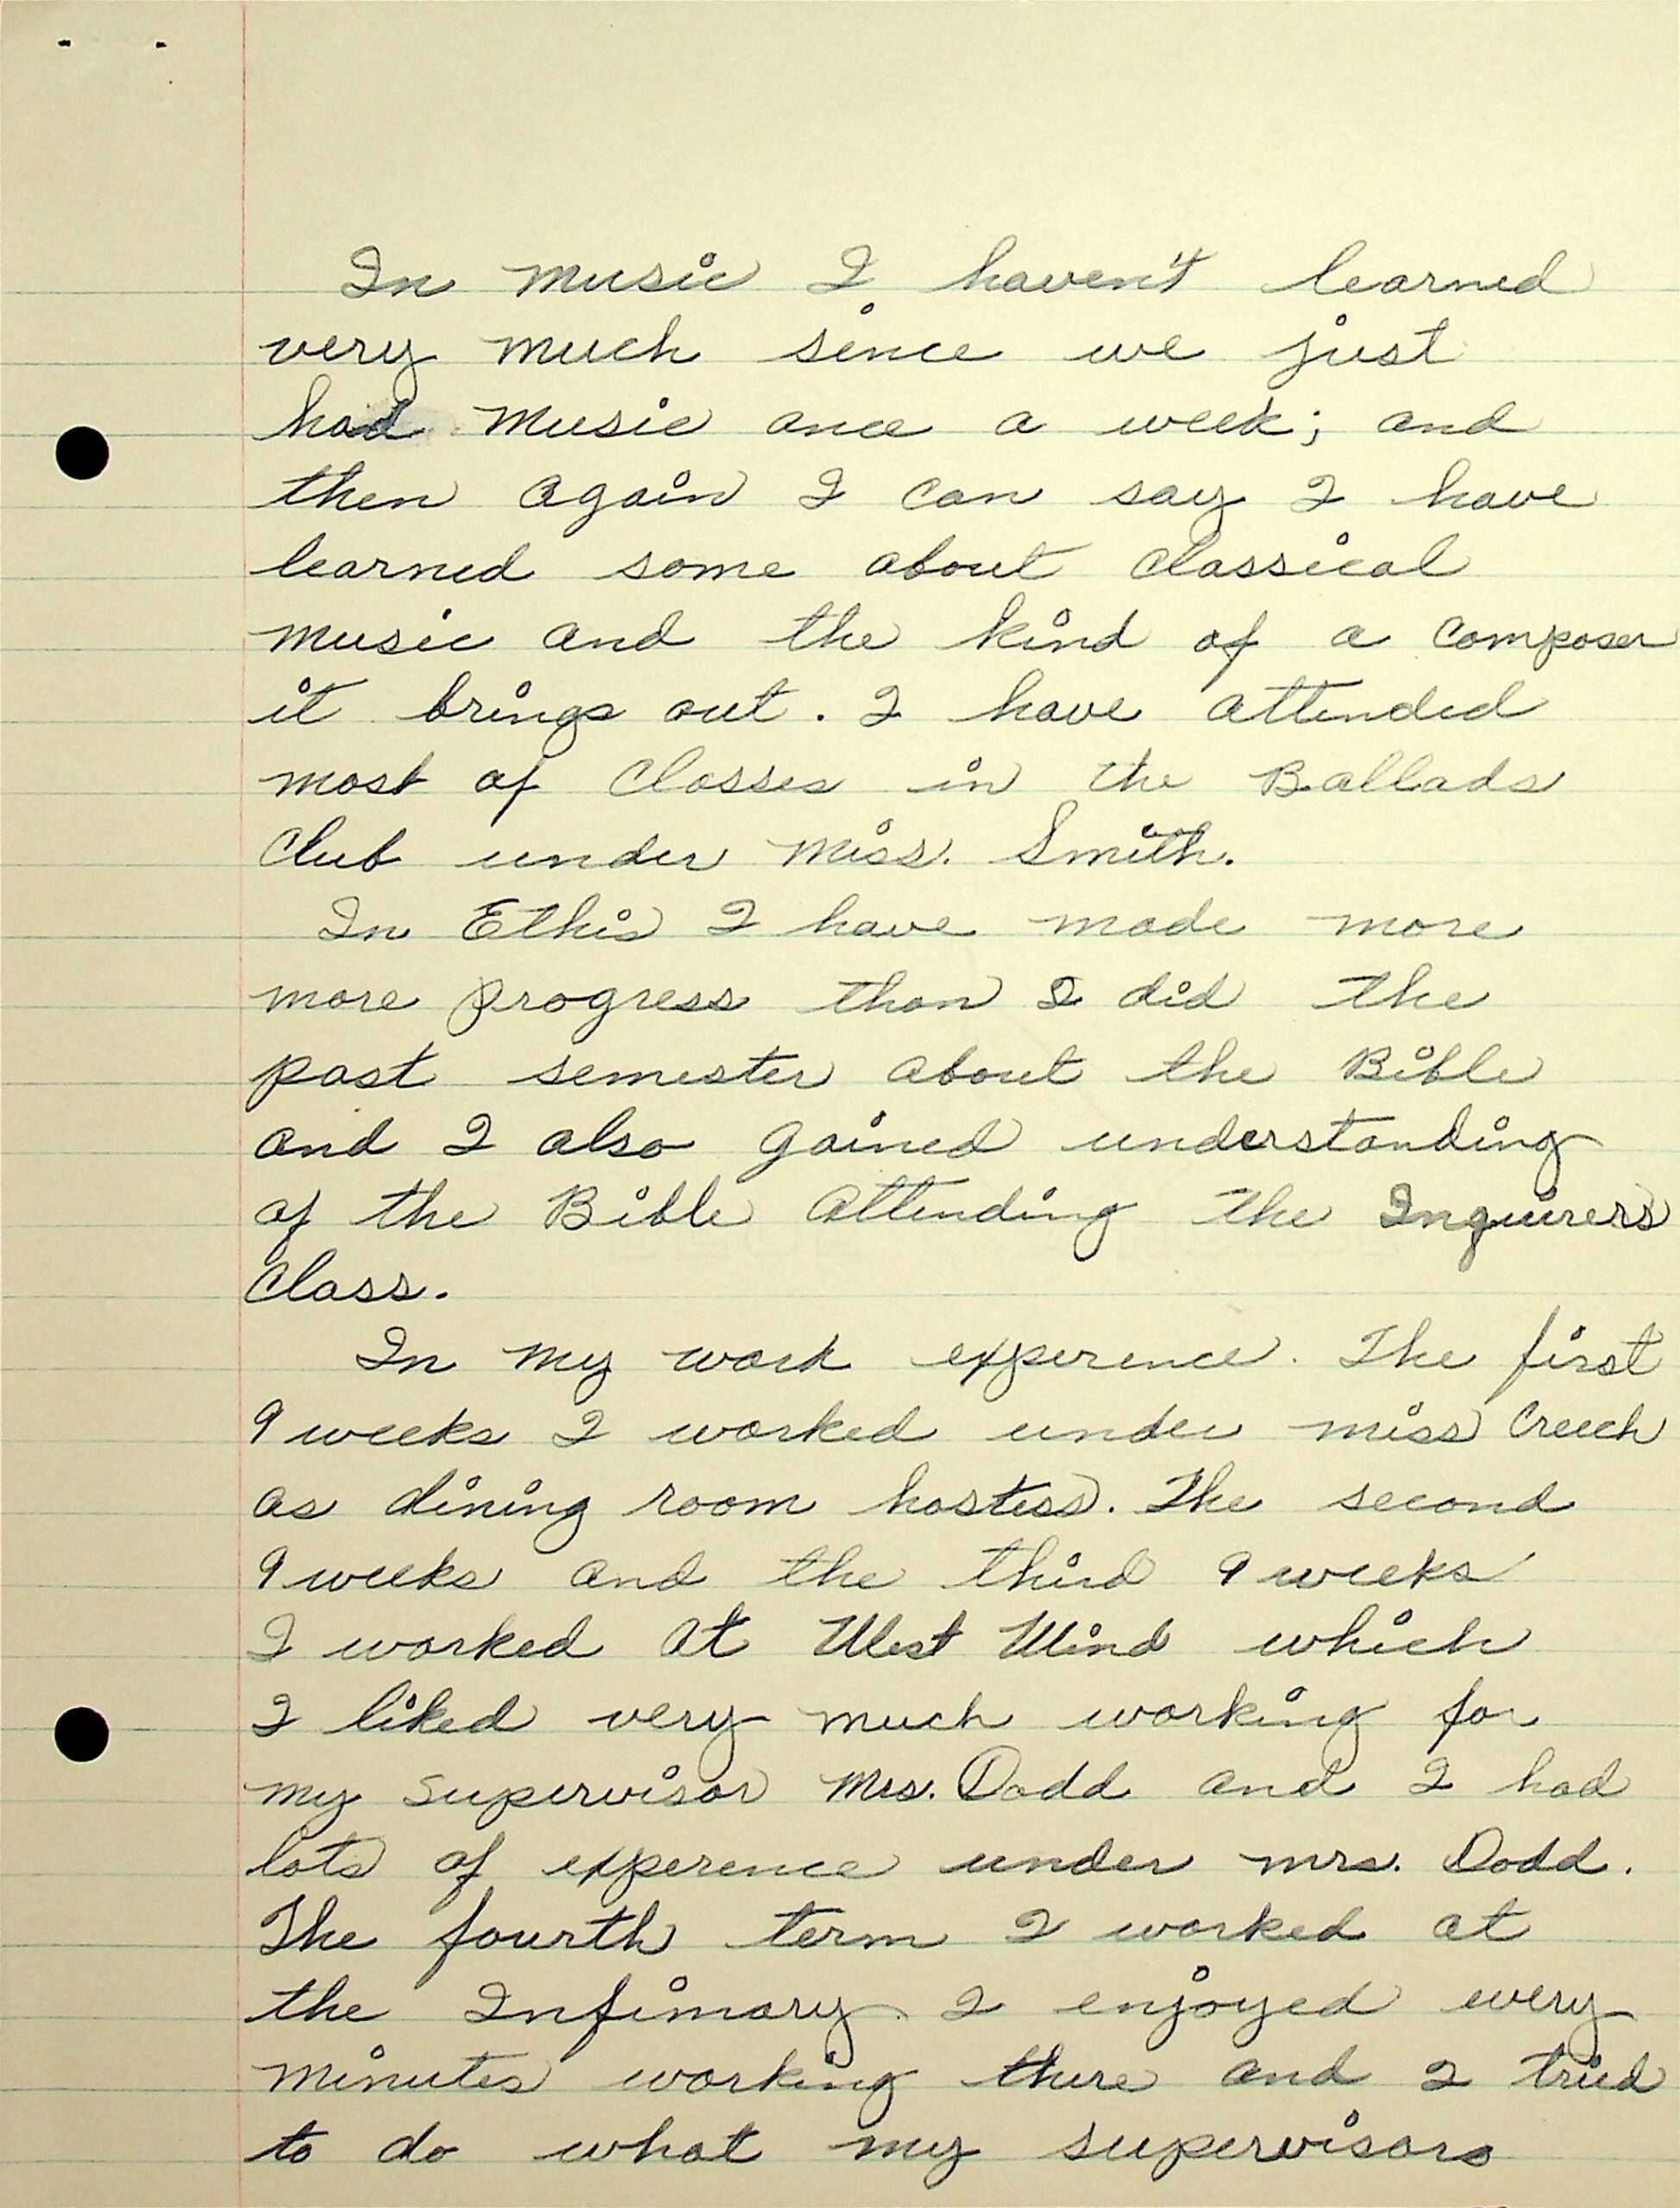 In music I haven't learned
very much since we just
had music once a week; and
then again I can say I have
learned some about classical
music and the kind of a composer
it brings out. I have attended
most of classes in the Ballads
Club under miss. Smith.
In Ethis I have made more
more progress than I did the
past semester about the Bible
and I also gained understanding
of the Bible attending the Inquirers
Class.
In my work experence. The first
9 weeks I worked under miss Creech
as dining room hostess. The second
9 weeks and the third 9 weeks
I worked at West Wind which
I liked very much working for
my supervisor Mrs. Dodd and I had
lots of experence under mrs. Dodd.
The fourth term I worked at
the Infimary. I enjoyed every
minutes working there and I tried
to do what my supervisors